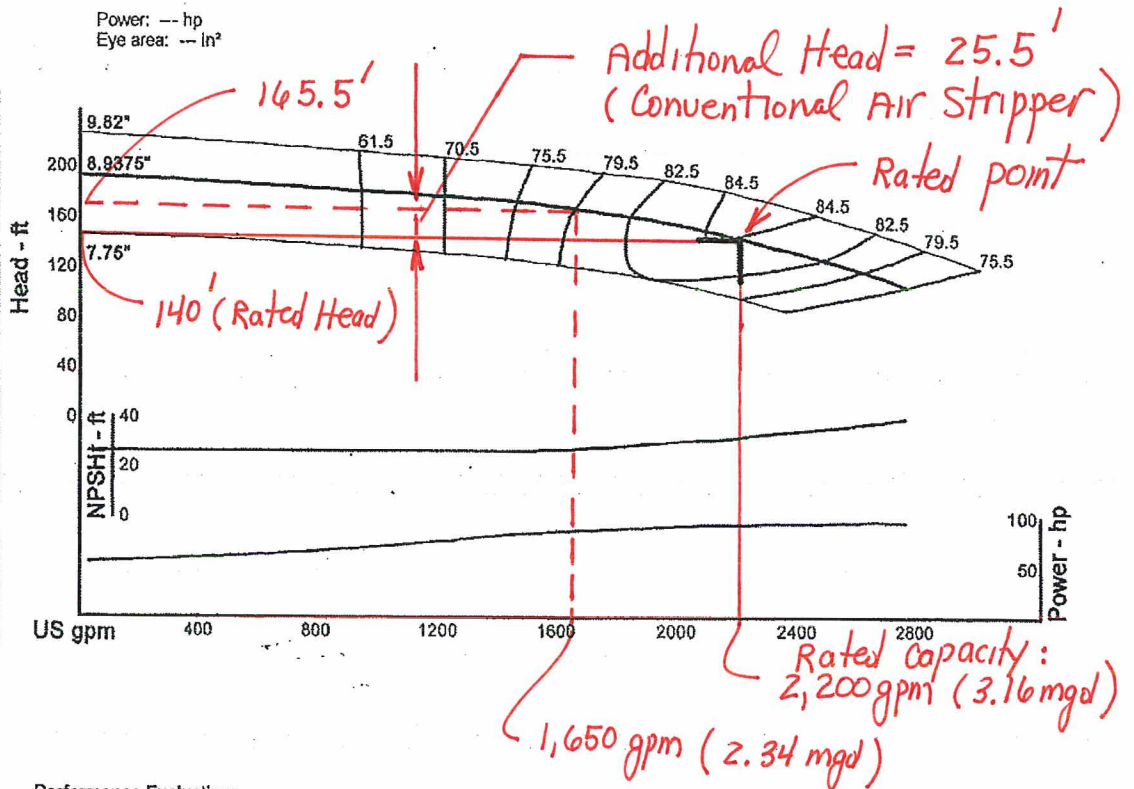 Power: --- hp
Eye area: --- in²
Additional Head = 25.5'
(Conventional Air Stripper)
165.5'
Rated point
9.82"
61.5
70.5
75.5
79.5
82.5
84.5
84.5
82.5
79.5
75.5
8.9375"
7.75"
200
160
120
80
40
0
Head - ft
140' (Rated Head)
40
20
0
NPSHr - ft
100
50
Power - hp
US gpm
400
800
1200
1600
2000
2400
2800
Rated Capacity:
2,200 gpm (3.16 mgd)
1,650 gpm (2.34 mgd)